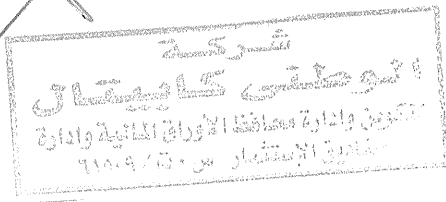 شركة
الوطني كابيتال
لتكوين وإدارة محافظ الأوراق المالية وادارة
صناديق الإستثمار س.ت/